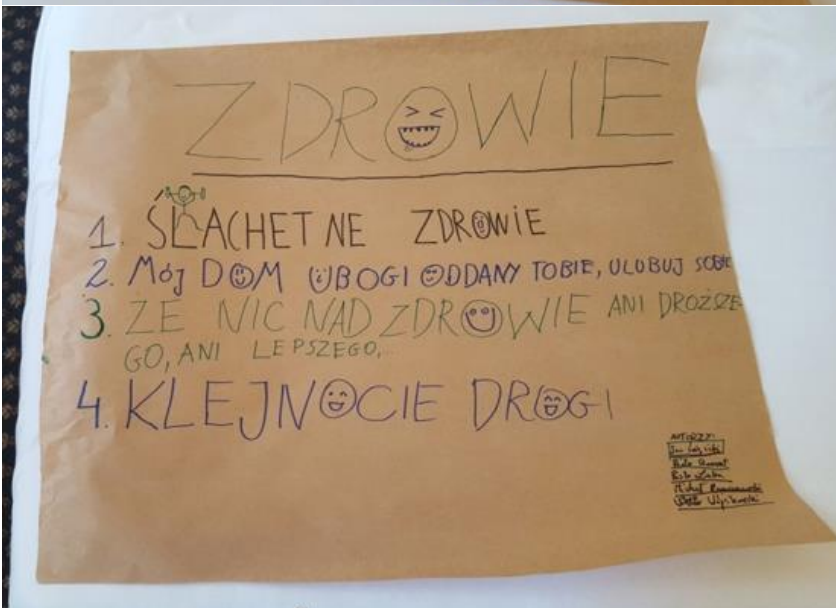 ZDROWIE
1. ŚLACHETNE ZDROWIE
2. MÓJ DOM UBOGI ODDANY TOBIE, ULUBUJ SOBIE
3. ZE NIC NAD ZDROWIE ANI DROŻSZE-
GO, ANI LEPSZEGO,...
4. KLEJNOCIE DROGI
AUTORZY:
Jan
Michał